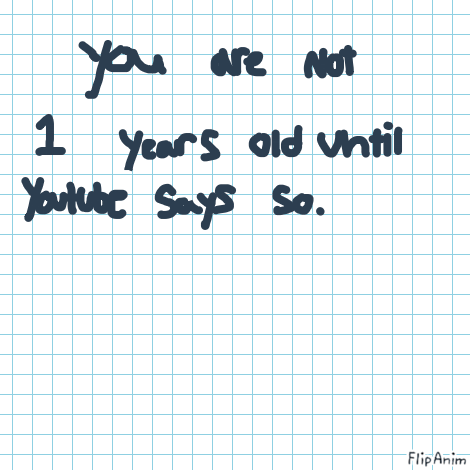 you are Not
1 years old until
Youtube says so.
FlipAnim